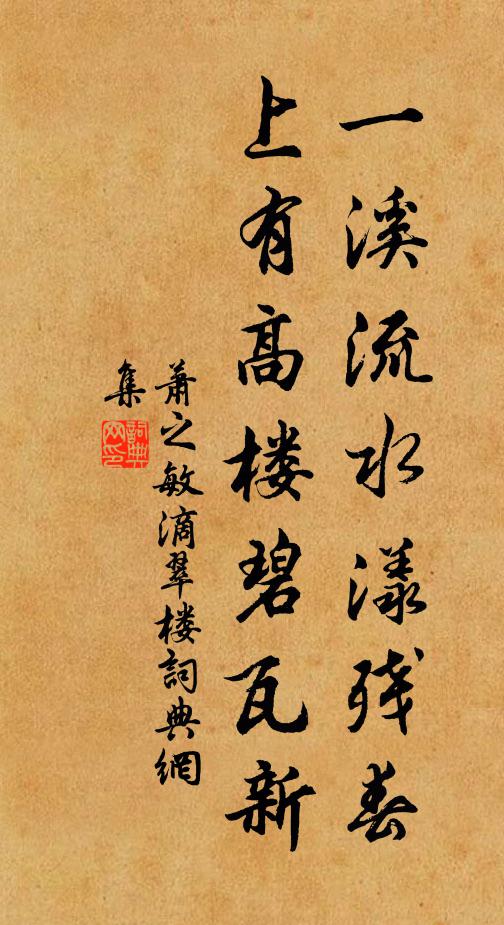 一溪流水漾残春
上有高楼碧瓦新
萧之敏滴翠楼詞典網
集
詞典
网印